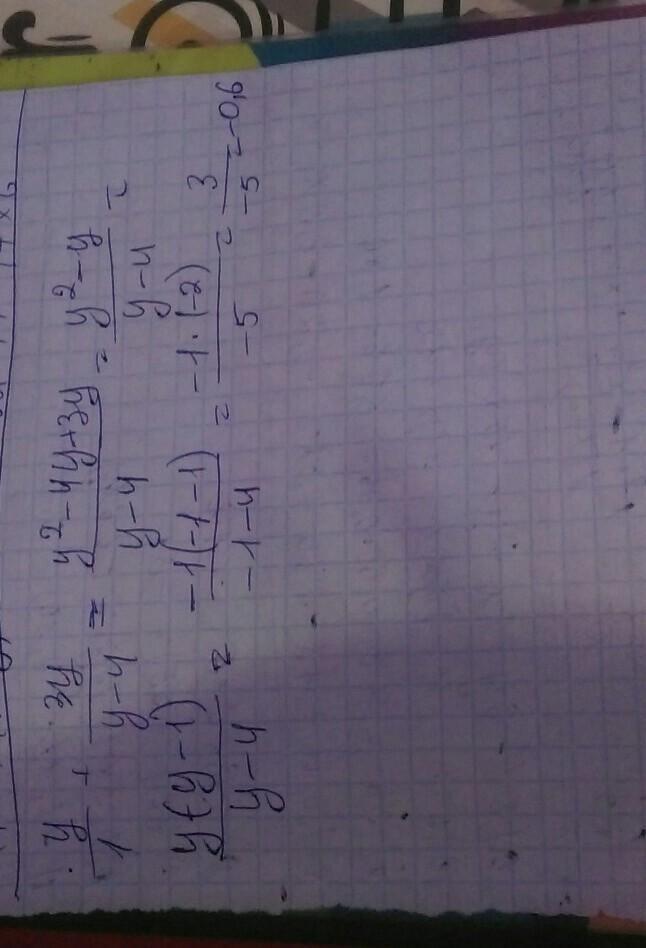 y/1 + 3y/(y-4) = (y²-4y+3y)/(y-4) = (y²-y)/(y-4) =
y(y-1)/(y-4) = -1(-1-1)/(-1-4) = -1·(-2)/(-5) = 3/(-5) = -0,6